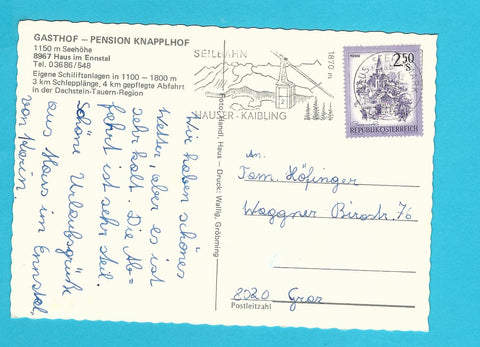 GASTHOF – PENSION KNAPPLHOF
1150 m Seehöhe
8967 Haus im Ennstal
Tel. 03686/548
Eigene Schiliftanlagen in 1100 – 1800 m
3 km Schlepplänge, 4 km gepflegte Abfahrt
in der Dachstein-Tauern-Region
SEILBAHN
1870 m
HAUSER-KAIBLING
2.50
S
REPUBLIK ÖSTERREICH
Wir haben schönes
Wetter aber es ist
sehr kalt. Die Ab=
fahrt ist sehr steil.
Schöne Urlaubsgrüße
aus Haus im Ennstal,
von Karin.
Haus – Druck: Wallig, Gröbming
An.
Fam. Höfinger
Waggner Birostr. 76
8020 Graz
Postleitzahl